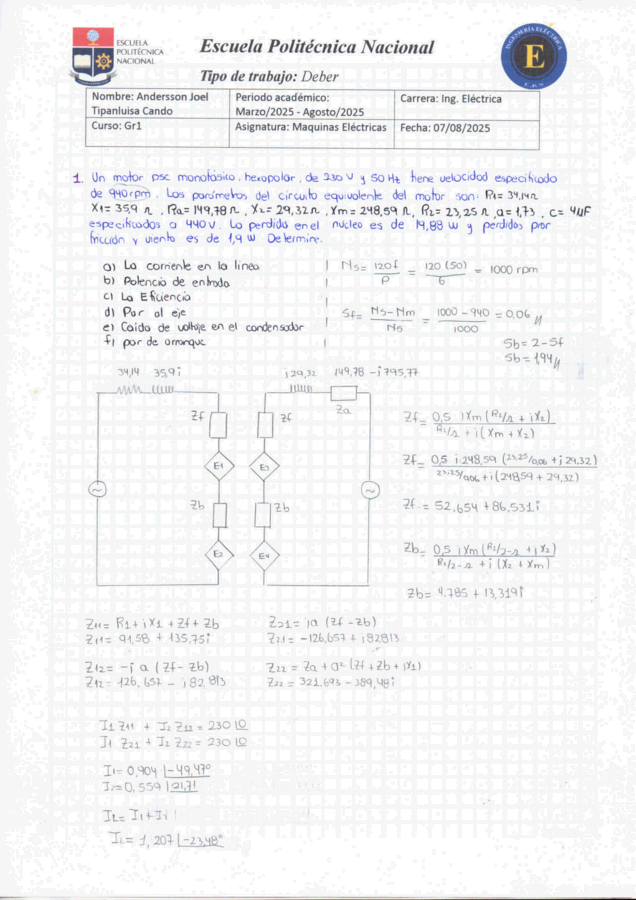 ESCUELA
POLITÉCNICA
NACIONAL
Escuela Politécnica Nacional
Tipo de trabajo: Deber
INGENIERÍA ELÉCTRICA
E
E.P.N
Nombre: Andersson Joel Tipanluisa Cando
Periodo académico: Marzo/2025 - Agosto/2025
Carrera: Ing. Eléctrica
Curso: Gr1
Asignatura: Maquinas Eléctricas
Fecha: 07/08/2025
1. Un motor psc monofásico, hexapolar, de 230 V y 50 Hz tiene velocidad especificado
de 940 rpm. Los parámetros del circuito equivalente del motor son: R1 = 34,14 Ω
X1 = 35,9 Ω, Ra = 149,78 Ω, X2 = 29,32 Ω, Xm = 248,59 Ω, R2 = 23,25 Ω, a = 1,73, c = 4uF
especificados a 440 v. La perdida en el núcleo es de 19,88 w y perdidas por
fricción y viento es de 1,9 w Determine.
a) La corriente en la línea
b) Potencia de entrada
c) La Eficiencia
d) Par al eje
e) Caída de voltaje en el condensador
f) par de arranque
Ns = 120f / P = 120 (50) / 6 = 1000 rpm
Sf = Ns - Nm / Ns = 1000 - 940 / 1000 = 0.06 //
Sb = 2 - Sf
Sb = 1,94 //
34,14 35,9i
i29,32 149,78 - i795,77
Za
Zf Zf
E1 E3
Zb Zb
E2 E4
Zf = 0,5 iXm (R2/s + iX2) / R2/s + i(Xm + X2)
Zf = 0,5 i 248,59 (23,25/0,06 + i 29,32) / 23,25/0,06 + i(248,59 + 29,32)
Zf = 52,654 + 86,531i
Zb = 0,5 iXm (R2/2-s + iX2) / R2/2-s + i (X2 + Xm)
Zb = 4,785 + 13,319i
Z11 = R1 + iX1 + Zf + Zb
Z11 = 91,58 + 135,75i
Z21 = ia (Zf - Zb)
Z21 = -126,657 + i82813
Z12 = -i a (Zf - Zb)
Z12 = 126,657 - i82,813
Z22 = Za + a² (Zf + Zb + iX1)
Z22 = 321,693 - 389,48i
I1 Z11 + I2 Z12 = 230 |0
I1 Z21 + I2 Z22 = 230 |0
I1 = 0,904 |-49,47°
I2 = 0,559 |21,71
IL = I1 + I2
IL = 1,207 |-23,48°